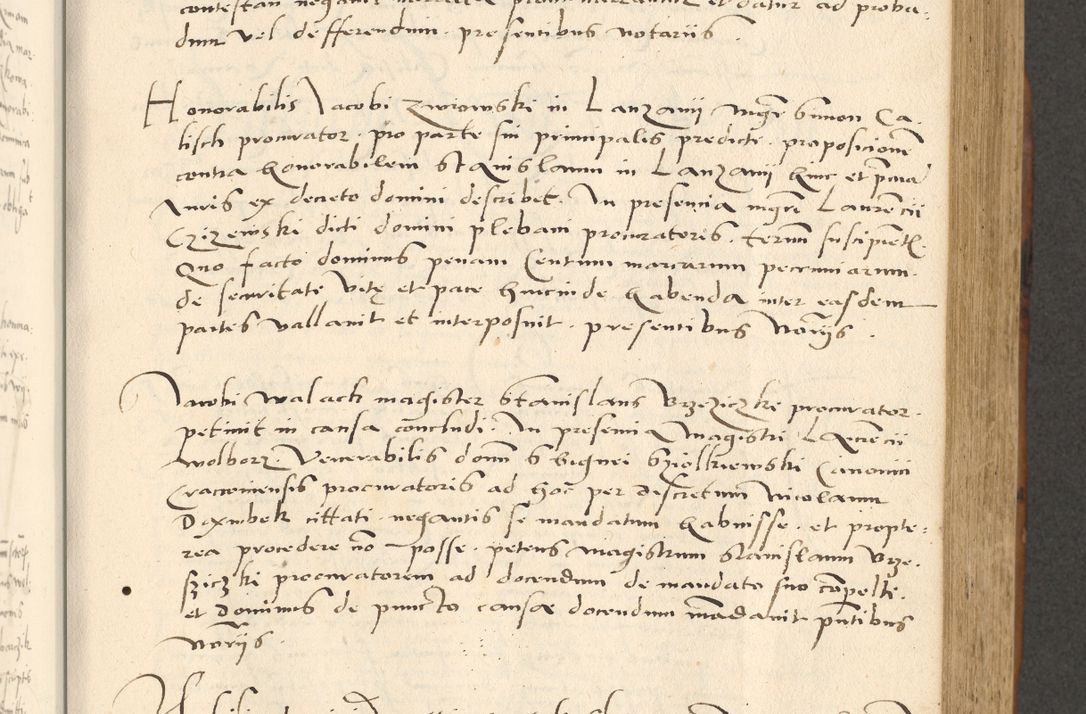 dum vel defferendum. presentibus notariis.
Honorabilis Jacobi Zwirowski in Lanzanij mgr Simon Ca-
lisch procurator. pro parte sui principalis predicti. proposicionem
contra honorabilem Stanislaum in Lanzanij hinc et
Juris ex decreto domini describet. In presencia mgri Laurencii
Czizewski dicti domini plebani procuratoris. term suscipientis.
Quo facto dominus penam Centum marcarum pecuniarum.
de securitate vitę et pace hincinde habenda inter easdem
partes vallavit et interposuit. presentibus Notrijs.
Jacobi Walach magister Stanislaus Brzeziczki procurator.
petivit in causa concludi. In presencia Magistri Laurencii
Wolborz. Venerabilis domini Sbignei Sziolkiewski Canonici
Cracoviensis procuratoris ad hoc per discretum Nicolaum
Doxmbek cittati. negantis se mandatum habuisse. et propte-
rea procedere no posse. petens magistrum Stanislaum Brze-
sziczki procuratorem ad docendum de mandato suo compelli.
et Dominus de puncto causa docendum mandavit. pntibus
Notrijs.